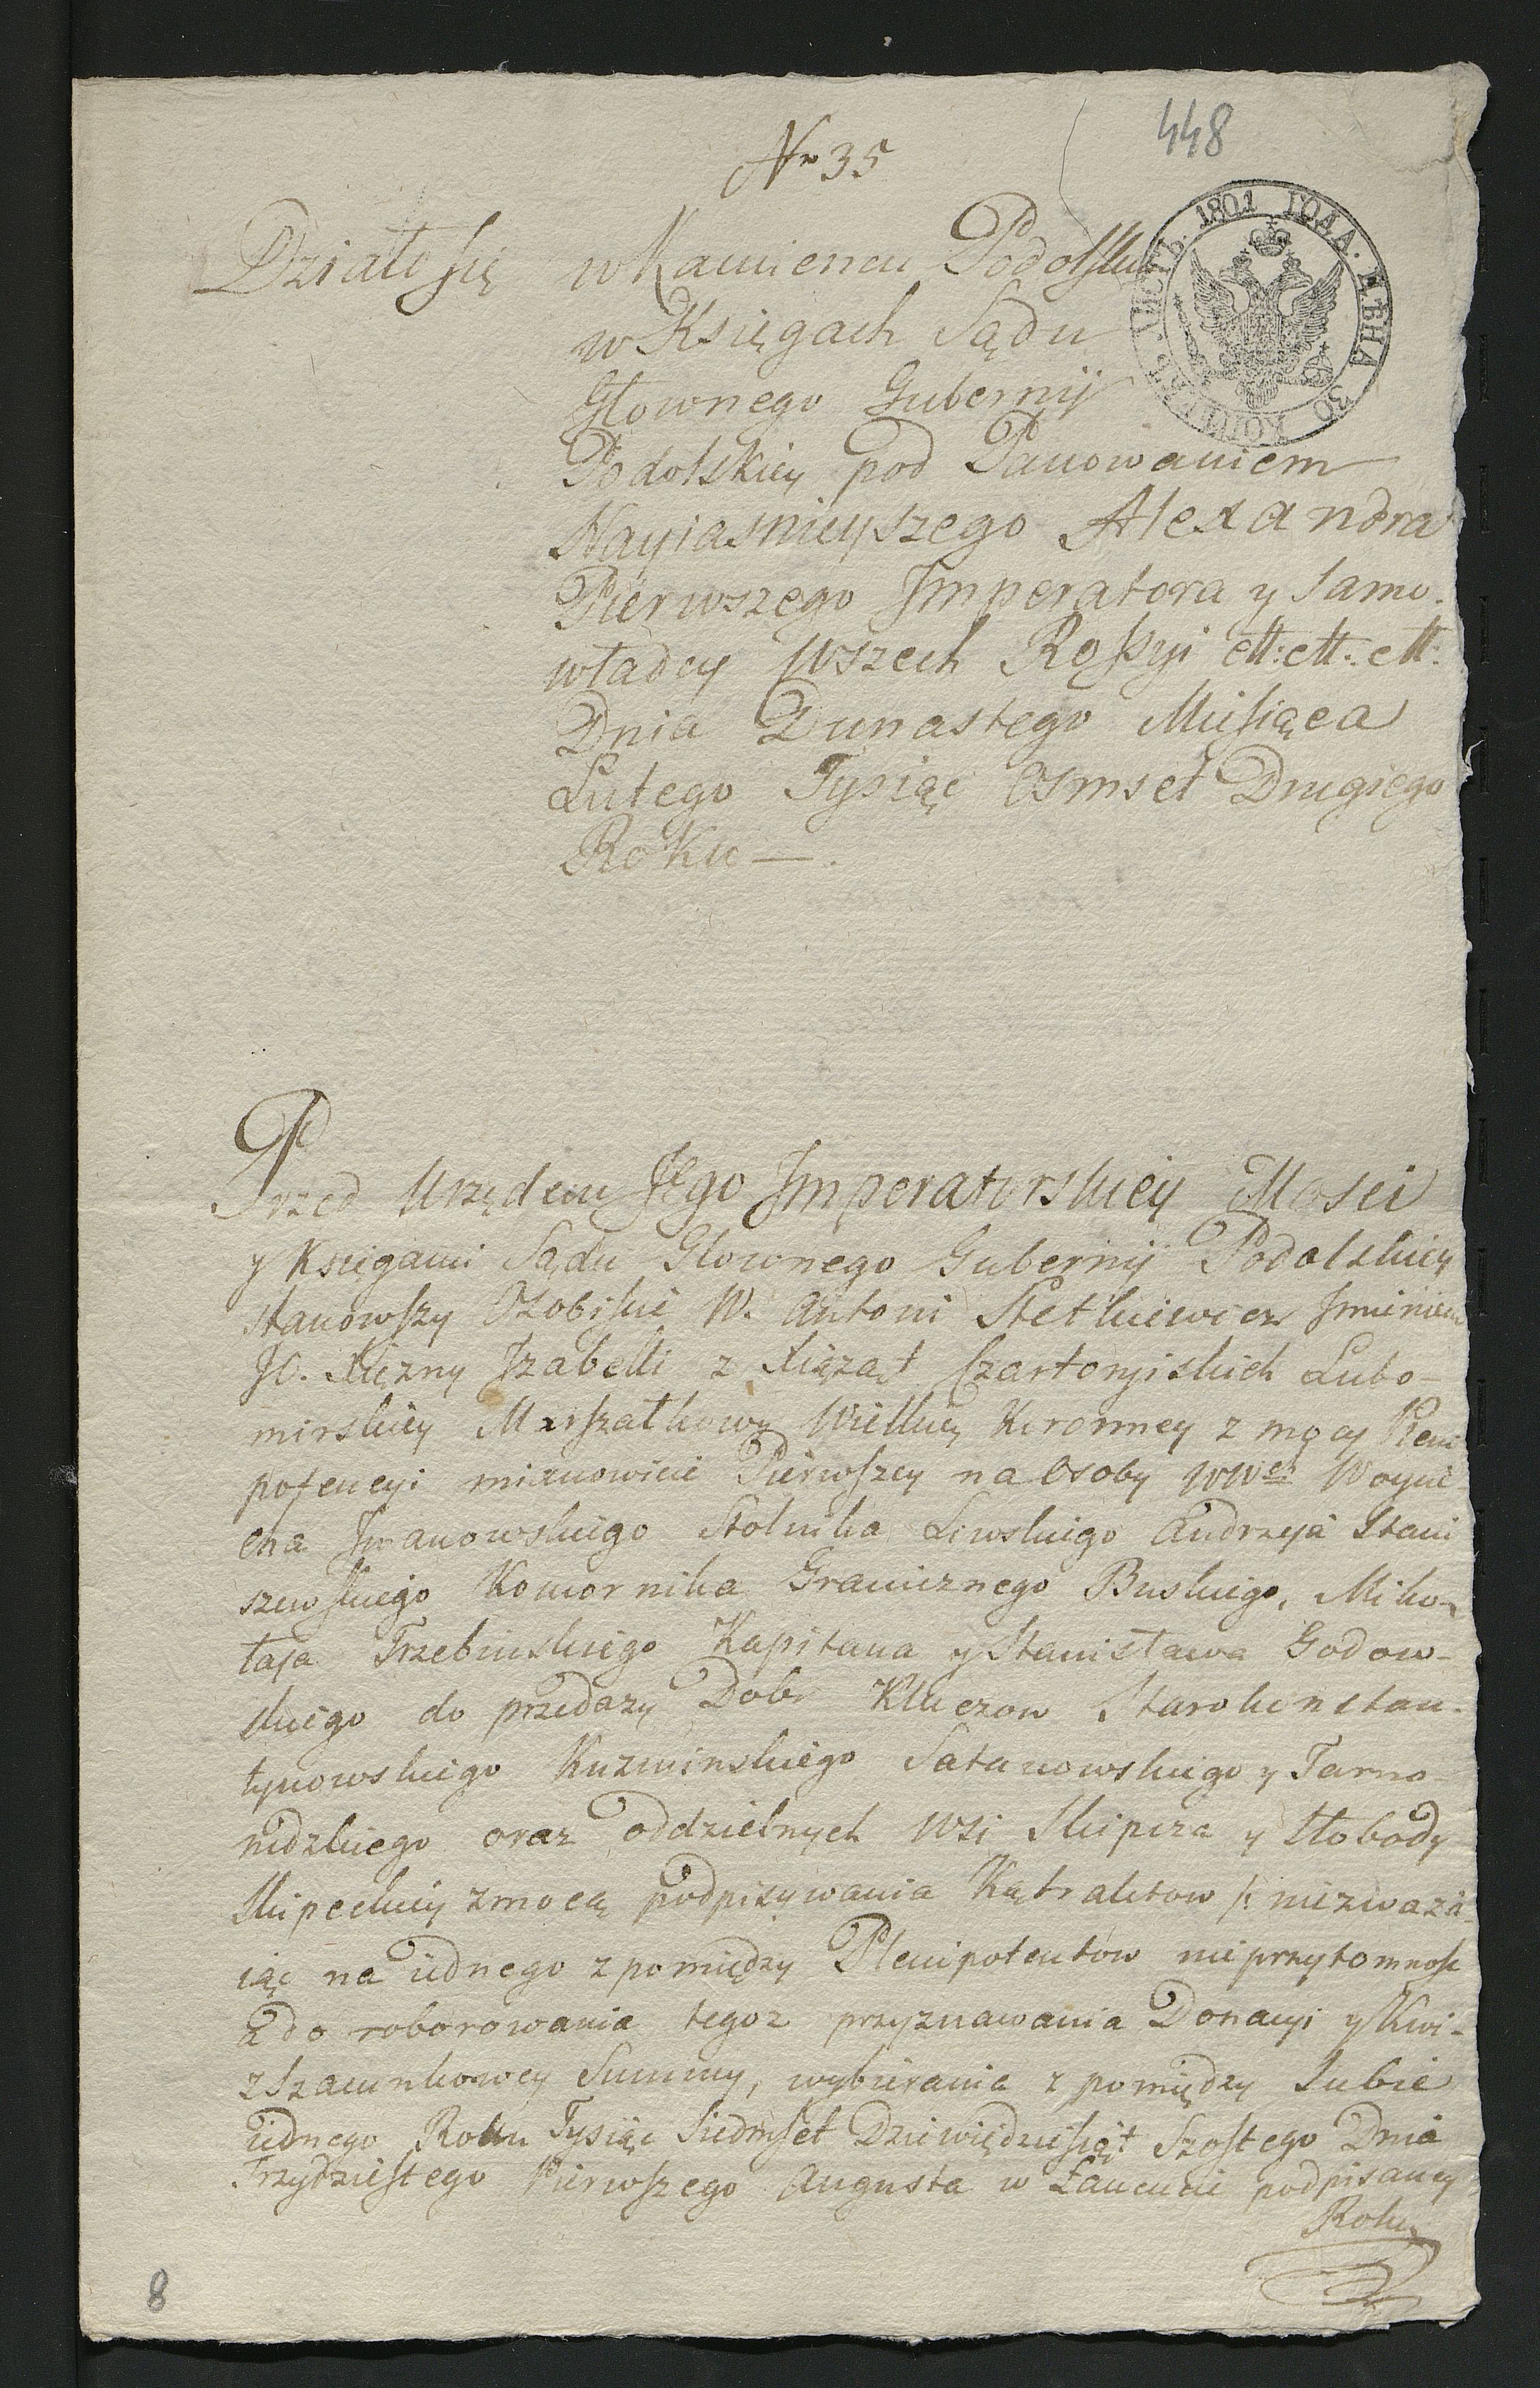 448
Nr 35
Działo się w Kamiencu Podolskim
w Księgach Sądu
Głownego Gubernij
Podolskiey pod Panowaniem
Nayiasnieyszego Alexandra
Pierwszego Imperatora y Samo-
władcy Wszech Rossyi ett: ett: ett:
Dnia Dunastego Miesiąca
Lutego Tysiąc Osmset Drugiego
Roku —.
1801 ГОДА. ЦѢНА 30 КОПѢЕКЪ. ЛИСТЪ.
Przed Urzędem Jego Imperatorskiey Mosci
y Księgami Sądu Głownego Gubernij Podolskiey
stanowszy Osobiscie W. Antoni Stetkiewicz Imieniem
JO. Xiężny Izabelli z Xiążąt Czartoryiskich Lubo-
mirskiey Marszałkowy Wielkiey Koronney z mocy Pleni
potencyi mianowicie Pierwszey na Osoby WWch Woycie
cha Iwanowskiego Stolnika Liwskiego Andrzeja Stani
szewskiego Komornika Granicznego Buskiego, Miko-
łaja Trzebinskiego Kapitana y Stanisława Godow-
skiego do przedazy Dobr Kluczow Starokonstan-
tynowskiego Kuzminskiego Satanowskiego y Tarno-
rudzkiego oraz oddzielnych Wsi Skipcza y Słobody
Skipeckiey z mocą podpisywania Kątraktow /: niezwaza-
iąc na iednego z pomiędzy Plenipotentow nieprzytomnosc
a do roborowania tegoz przyznawania Donacyi y Kwi-
z Szacunkowey Summy, wybierania z pomiędzy Siebie
iednego Roku Tysiąc Siedmset Dziewiędziesiąt Szostego Dnia
Trzydziestego Pierwszego Augusta w Łancucie podpisaney
Roku
8